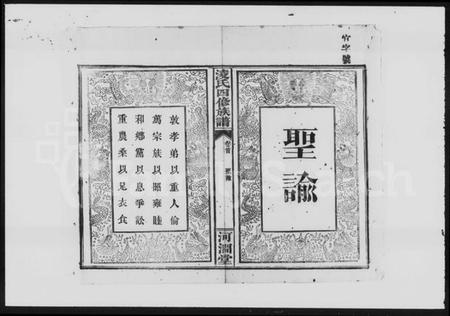 字號
聖諭
淩氏四修族譜
卷首 聖諭
河澗堂
敦孝弟以重人倫
篤宗族以昭雍睦
和鄉黨以息爭訟
重農桑以足衣食